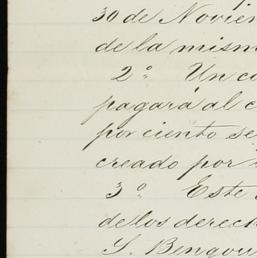 30 de Noviem
de la mism
2º. Un co
pagará al c
por ciento se
creado por
3º. Este
de los derech
S. Bengou